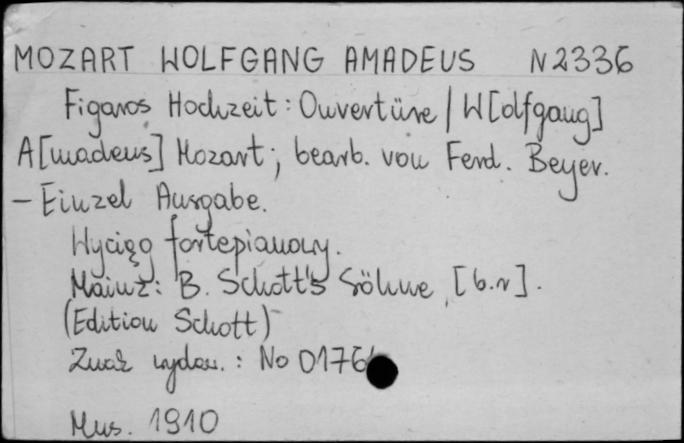 MOZART WOLFGANG AMADEUS N2336
Figaros Hochzeit : Ouvertüre / W[olfgang]
A[madeus] Mozart ; bearb. von Ferd. Beyer.
– Einzel Ausgabe.
Wyciąg fortepianowy.
Mainz: B. Schott's Söhne, [b.r].
(Edition Schott)
Znak wydaw. : No 0176
Mus. 1910